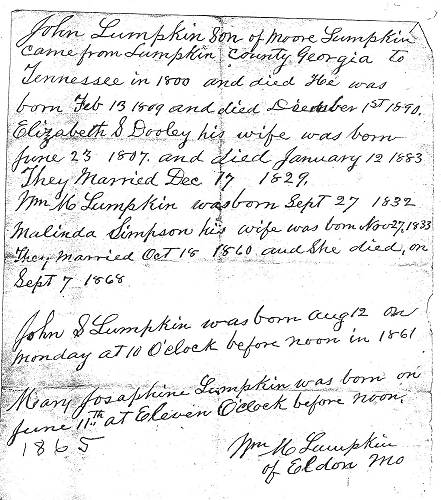 John Lumpkin Son of Moore Lumpkin
came from Lumpkin County Georgia to
Tennessee in 1800 and died He was
born Feb 13 1809 and died December 1st 1890.
Elizabeth S Dooley his wife was born
June 23 1807. and died January 12 1883
They Married Dec 17 1829.
Wm M Lumpkin was born Sept 27 1832
Malinda Simpson his wife was born Nov 27, 1833
They Married Oct 18 1860 and She died, on
Sept 7 1868
John S Lumpkin was born Aug 12 on
Monday at 10 O'clock before noon in 1861
Mary Josaphine Lumpkin was born on
June 11th at Eleven O'clock before noon.
1865
Wm M Lumpkin
of Eldon Mo